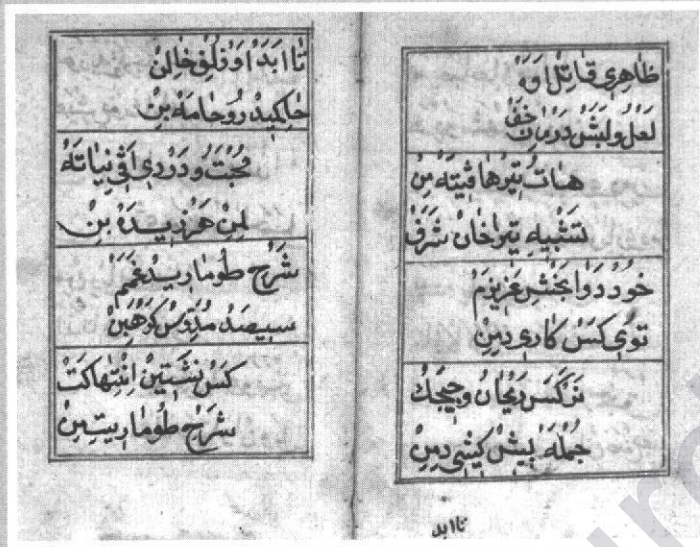 ظاهری قاتل اوه
لعل ولبش درمان خف
هات تیرها قیته من
تشبیه تیراخان شرف
خود دوا بخش عزیزم
توی کس کاری دمن
نرکس ریحان وچیچك
جمله پیش کیشی دمن
تا ابد
تا ابدا او قلق خالن
حاکمید روحامه بن
محبت ودردی افی نیاته
لمن هر زیده بن
شرح طومارید غمم
سیصد مدرس کو هبن
کس نشتین انتهاکت
شرح طوماریتمن